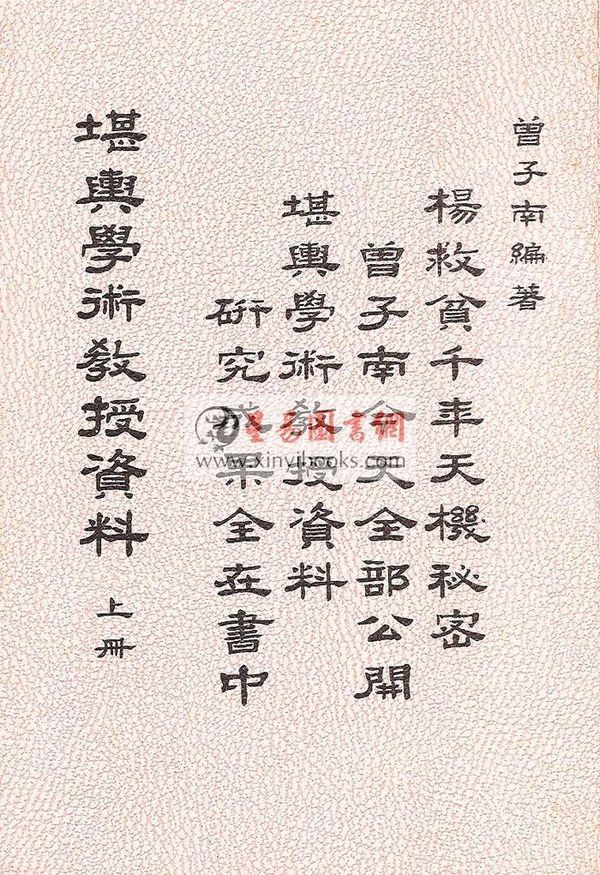 曾子南編著
楊救貧千年天機秘密
曾子南今天全部公開
堪輿學術教授資料
研究成果全在書中
堪輿學術教授資料 上冊
星易圖書網
www.xinyibooks.com